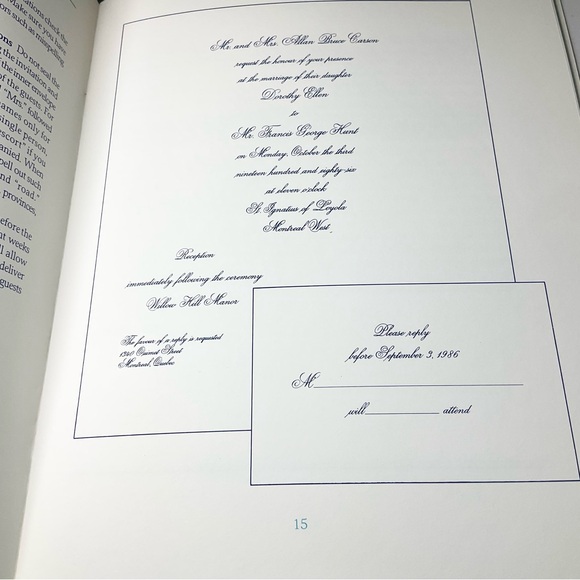 ations check the
ors such as misspelling.
Make sure you have
ons Do not seal the
the invitation and
the inner envelope
of the guests. For
"Mrs." followed
ames only for
single person
escort" if you
anied. When
pell out such
nd "road."
provinces,
efore the
ht weeks
ll allow
deliver
guests
Mr. and Mrs. Allan Bruce Carson
request the honour of your presence
at the marriage of their daughter
Dorothy Ellen
to
Mr. Francis George Hunt
on Monday, October the third
nineteen hundred and eighty-six
at eleven o'clock
St. Ignatius of Loyola
Montreal West.
Reception
immediately following the ceremony
Willow Hill Manor
The favour of a reply is requested
1340 Ouimet Street
Montreal, Quebec
Please reply
before September 3, 1986
M
will attend
15